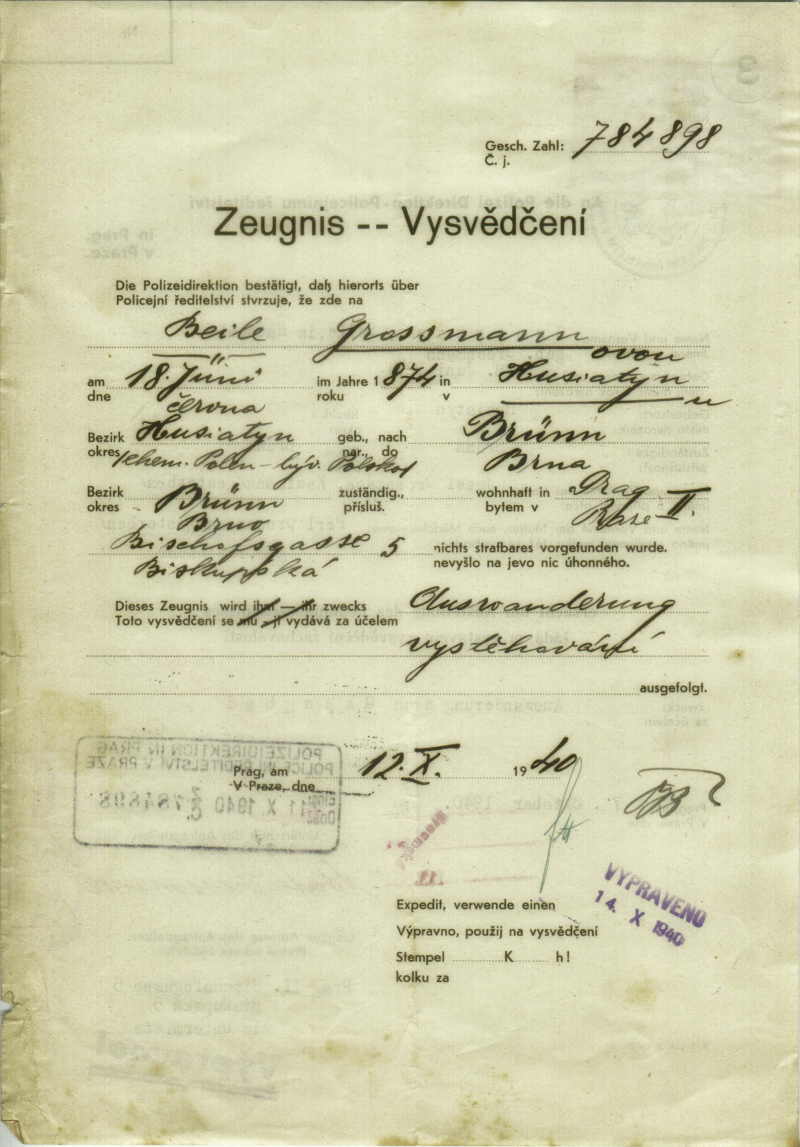 Gesch. Zahl: 784898
Č. j.
Zeugnis -- Vysvědčení
Die Polizeidirektion bestätigt, daß hierorts über
Policejní ředitelství stvrzuje, že zde na
Beile Grossmann
ovou
am 18. Juni im Jahre 1874 in Husiatyn
dne června roku v u
Bezirk Husiatyn geb., nach Brünn
okres /ehem. Polen - býv. Polsko/ nar., do Brna
Bezirk Brünn zuständig., wohnhaft in Prag II.
okres Brno přísluš. bytem v Praze
Bischofsgasse 5 nichts strafbares vorgefunden wurde.
Biskupská nevyšlo na jevo nic úhonného.
Dieses Zeugnis wird ihm — ihr zwecks Auswanderung
Toto vysvědčení se mu — jí vydává za účelem
vystěhování
ausgefolgt.
Prag, am 12. X. 1940
V Praze, dne
POLIZEIDIREKTION IN PRAG
POLICEJNÍ ŘEDITELSTVÍ V PRAZE
11 X 1940 784898
VYPRAVENO
14. X 1940
Expedit, verwende einen
Výpravno, použij na vysvědčení
Stempel K h!
kolku za